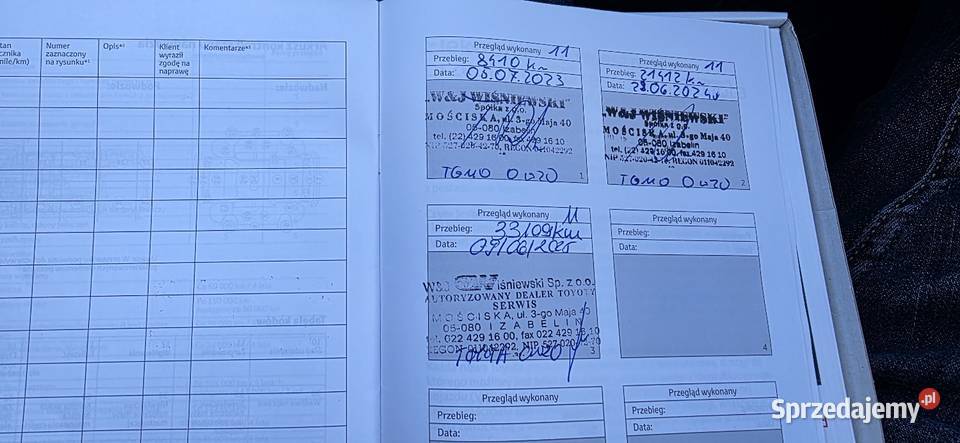 tan
cznika
mile/km)
Numer
zaznaczony
na rysunku*¹
Opis*²
Klient
wyraził
zgodę na
naprawę
Komentarze*³
Przegląd wykonany 11
Przebieg: 8410 km
Data: 05.07.2023
„W&J WIŚNIEWSKI"
Spółka z o.o.
MOŚCISKA, ul. 3-go Maja 40
05-080 Izabelin
tel. (22) 429 16 00, fax 429 16 10
REGON 011042292
TGMO 0W20
1
Przegląd wykonany 11
Przebieg: 21412 km
Data: 06.2024
„W&J WIŚNIEWSKI"
Spółka z o.o.
MOŚCISKA, ul. 3-go Maja 40
05-080 Izabelin
tel. (22) 429 16 00, fax 429 16 10
REGON 011042292
TGMO 0W20
2
Przegląd wykonany 11
Przebieg: 33109km
Data: 09/06/2025
W&J Wiśniewski Sp. z o.o.
AUTORYZOWANY DEALER TOYOTY
SERWIS
MOŚCISKA, ul. 3-go Maja 40
05-080 IZABELIN
tel. 022 429 16 00, fax 022 429 16 10
REGON 011042292, NIP 527-020-
0W20
3
Przegląd wykonany
Przebieg:
Data:
4
Przegląd wykonany
Przebieg:
Data:
Przegląd wykonany
Przebieg:
Data:
Tabela kodów
Nadwozie:
Sprzedajemy.pl